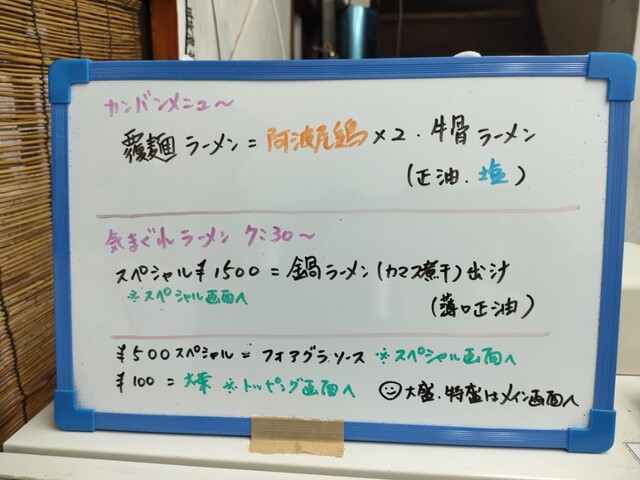 カンバンメニュー〜
覆麺 ラーメン = 阿波尾鶏×2・牛骨ラーメン
(正油、塩)
気まぐれラーメン 7:30〜
スペシャル¥1500 = 鍋ラーメン(カマス煮干)出汁
※スペシャル画面へ (薄口正油)
¥500スペシャル = フォアグラソース ※スペシャル画面へ
¥100 = 大葉 ※トッピング画面へ 大盛、特盛はメイン画面へ